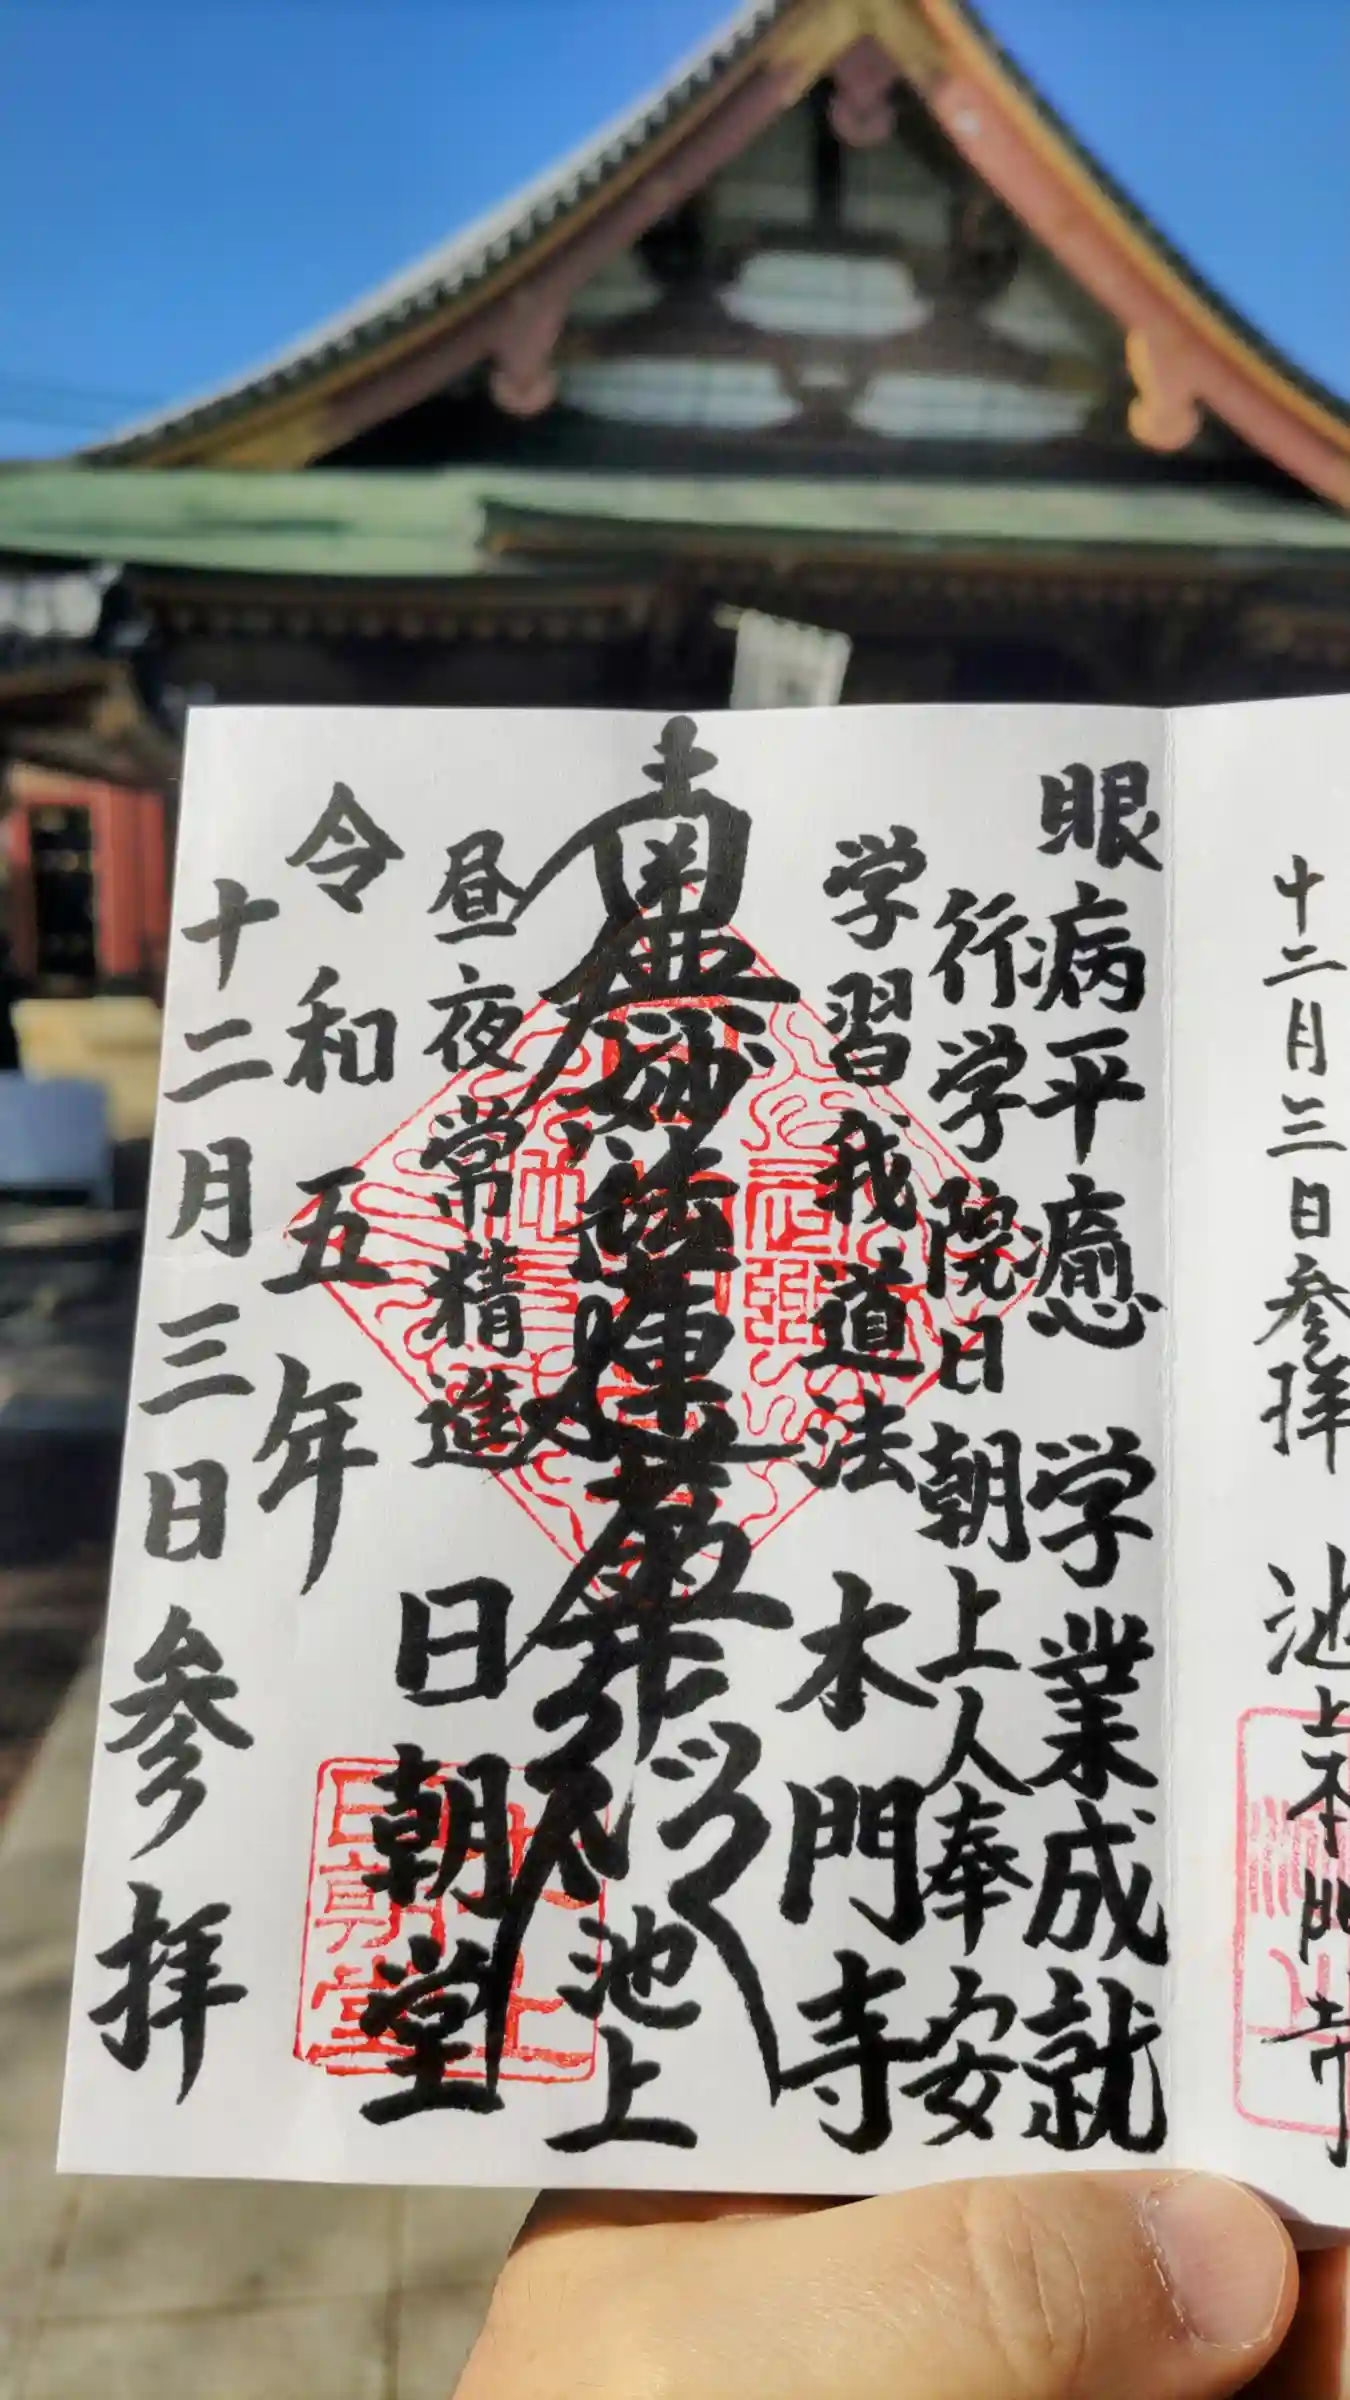 十二月三日参拝
池上本門寺
眼病平癒 学業成就
行学院日朝上人奉安
学習我道法
本門寺
南無妙法蓮華経
池上
昼夜常精進
日朝堂
令和五年
十二月三日参拝
日朝堂